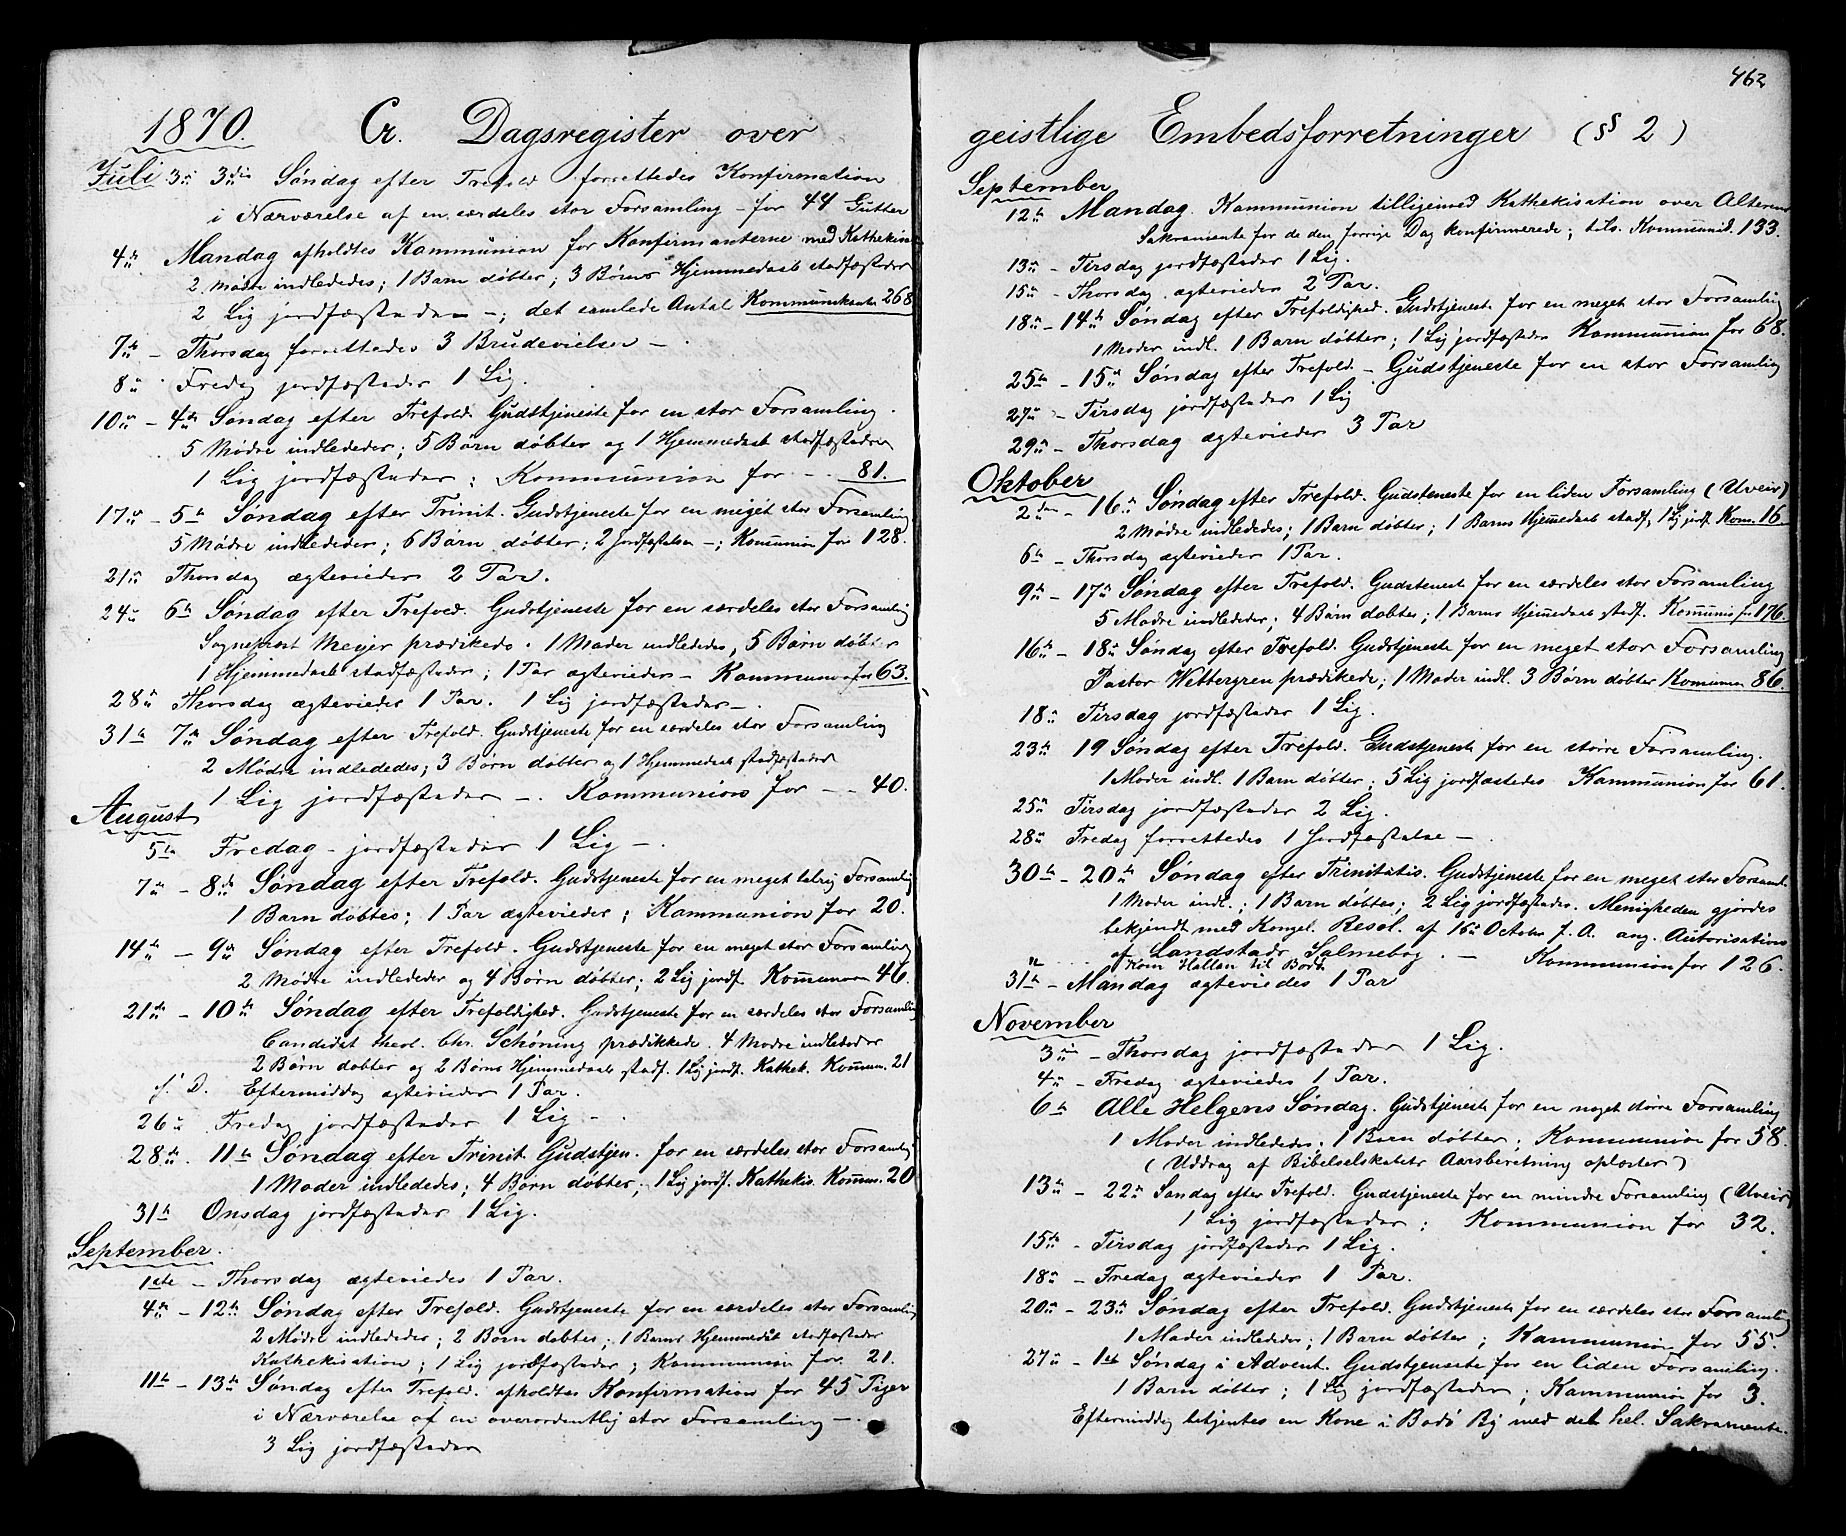 1870. Cr. Dagsregister over
Juli 3die 3die Søndag efter Trefold. forrettedes Konfirmation
i Nærværelse af en særdeles stor Forsamling – for 44 Gutter
4de Mandag afholdtes Kommunion for Konfirmanterne med Kathekisa
2 Mødre indlededes; 1 Barn døbtes; 3 Børns Hjemmedaab stadfæstedes
2 Lig jordfæstedes –; det samlede Antal Kommunikante 268
7de – Thorsdag forrettedes 3 Brudevielser –
8de Fredag jordfæstedes 1 Lig.
10de – 4de Søndag efter Trefold. Gudstjeneste for en stor Forsamling.
5 Mødre indlededes; 5 Børn døbtes og 1 Hjemmedaab stadfæstedes
1 Lig jordfæstedes; Kommunion for – – 81.
17de – 5te Søndag efter Trinit. Gudstjeneste for en meget stor Forsamling
5 Mødre indlededes; 6 Børn døbtes; 2 Jordfæstelser –; Kommunion for 128.
21de Thorsdag ægteviedes 2 Par.
24de 6te Søndag efter Trefold. Gudstjeneste for en særdeles stor Forsamlig
Sogneprest Meyer prædikede. 1 Moder indlededes, 5 Børn døbtes
1 Hjemmedaab stadfæstedes; 1 Par ægteviedes – Kommunion for 63.
28de Thorsdag ægteviedes 1 Par. 1 Lig jordfæstedes –.
31te 7de Søndag efter Trefold. Gudstjeneste for en særdeles stor Forsamling
2 Mødre indlededes; 3 Børn døbtes og 1 Hjemmedaab stadfæstedes
1 Lig jordfæstedes –. Kommunion for – – 40.
August
5te Fredag – jordfæstedes 1 Lig –.
7de – 8de Søndag efter Trefold. Gudstjeneste for en meget talrig Forsamlig
1 Barn døbtes; 1 Par ægteviedes; Kommunion for 20.
14de – 9de Søndag efter Trefold. Gudstjeneste for en meget stor Forsamling
2 Mødre indlededes og 4 Børn døbtes; 2 Lig jordf. Kommunion 46.
21de – 10de Søndag efter Trefoldighed. Gudstjeneste for en særdeles stor Forsamling
Candidat theol. Chr. Schöning prædikkede. 4 Mødre indlededes
2 Børn døbtes og 2 Børns Hjemmedaab stadf. 1 Lig jordf. Kathek. Kommun. 21
s. D. Eftermiddag ægteviedes 1 Par.
26de Fredag jordfæstedes 1 Lig –.
28de. 11te Søndag efter Trinit. Gudstjen. for en særdeles stor Forsamlig
1 Moder indlededes; 4 Børn døbtes; 1 Lig jordf. Kathekis. Kommun. 20
31te Onsdag jordfæstedes 1 Lig.
September.
1ste – Thorsdag ægteviedes 1 Par.
4de – 12te Søndag efter Trefold. Gudstjeneste for en særdeles stor Forsamling
2 Mødre indlededes; 2 Børn døbtes; 1 Barns Hjemmedaab stadfæstedes
Kathekisation; 1 Lig jordfæstedes; Kommunion for 21.
11te – 13de Søndag efter Trefold. afholdtes Konfirmation for 45 Piger
i Nærværelse af en overordentlig stor Forsamling –.
3 Lig jordfæstedes
462
geistlige Embedsforretninger (§ 2)
September
12te Mandag. Kommunion tilligemed Kathekisation over Alterens
Sakramente for de den forrige Dag konfirmerede; tils. Kommunik. 133.
13de – Tirsdag jordfæstedes 1 Lig.
15de – Thorsdag. ægteviedes 2 Par.
18de – 14de Søndag efter Trefoldighed. Gudstjeneste for en meget stor Forsamling
1 Moder indl. 1 Barn døbtes; 1 Lig jordfæstedes Kommunion for 68.
25de – 15de Søndag efter Trefold. – Gudstjeneste for en stor Forsamling
27de – Tirsdag jordfæstedes 1 Lig
29de – Thorsdag ægteviedes 3 Par
Oktober
2den – 16de Søndag efter Trefold. Gudsteneste for en liden Forsamling (Uveir)
2 Mødre indlededes; 1 Barn døbtes; 1 Barns Hjemmedaab stadf; 1 Lig jordf. Kom. 16.
6te – Thorsdag ægteviedes 1 Par.
9de – 17de Søndag efter Trefold. Gudsteneste for en særdeles stor Forsamling
5 Mødre indlededes; 4 Børn døbtes; 1 Barns Hjemmedaab stadf. Kommunio for 176.
16de – 18de Søndag efter Trefold. Gudstjeneste for en meget stor Forsamling
Pastor Wettergren prædikede; 1 Moder indl. 3 Børn døbtes Kommunion 86.
18de Tirsdag jordfæstedes 1 Lig.
23de 19 Søndag efter Trefold. Gudstjeneste for en større Forsamling.
1 Moder indl. 1 Barn døbtes; 5 Lig jordfæstedes Kommunion for 61.
25de Tirsdag jordfæstedes 2 Lig.
28de Fredag forrettedes 1 Jordfæstelse –.
30te – 20de Søndag efter Trinitatis. Gudstjeneste for en meget stor Forsaml.
1 Moder indl.; 1 Barn døbtes; 2 Lig jordfæstedes. Menigheden gjordes
bekjendt med Kongel. Resol. af 16de October f. A. ang. Autorisation
af Landstads Salmebog. – Kommunion for 126.
" .... Kom Hallan til Bodø
31te – Mandag ægteviedes 1 Par
November
3die – Thorsdag jordfæstedes 1 Lig.
4de – Fredag ægteviedes 1 Par.
6te Alle Helgens Søndag. Gudstjeneste for en noget større Forsamling
1 Moder indlededes; 1 Barn døbtes; Kommunion for 58.
(Uddrag af Bibelselskabets Aarsberetning oplæstes)
13de – 22de Søndag efter Trefold. Gudstjeneste for en mindre Forsamling (Uveir)
1 Lig jordfæstedes; Kommunion for 32.
15de – Tirsdag jordfæstedes 1 Lig.
18de – Fredag ægteviedes 1 Par.
20de – 23de Søndag efter Trefold. Gudstjeneste for en særdeles stor Forsamling
1 Moder indlededes; 1 Barn døbtes; Kommunion for 55.
27de – 1ste Søndag i Advent. Gudstjeneste for en liden Forsamling.
1 Barn døbtes; 1 Lig jordfæstedes; Kommunion for 3.
Eftermiddag betjentes en Kone i Bodø By med det hel. Sakramente.